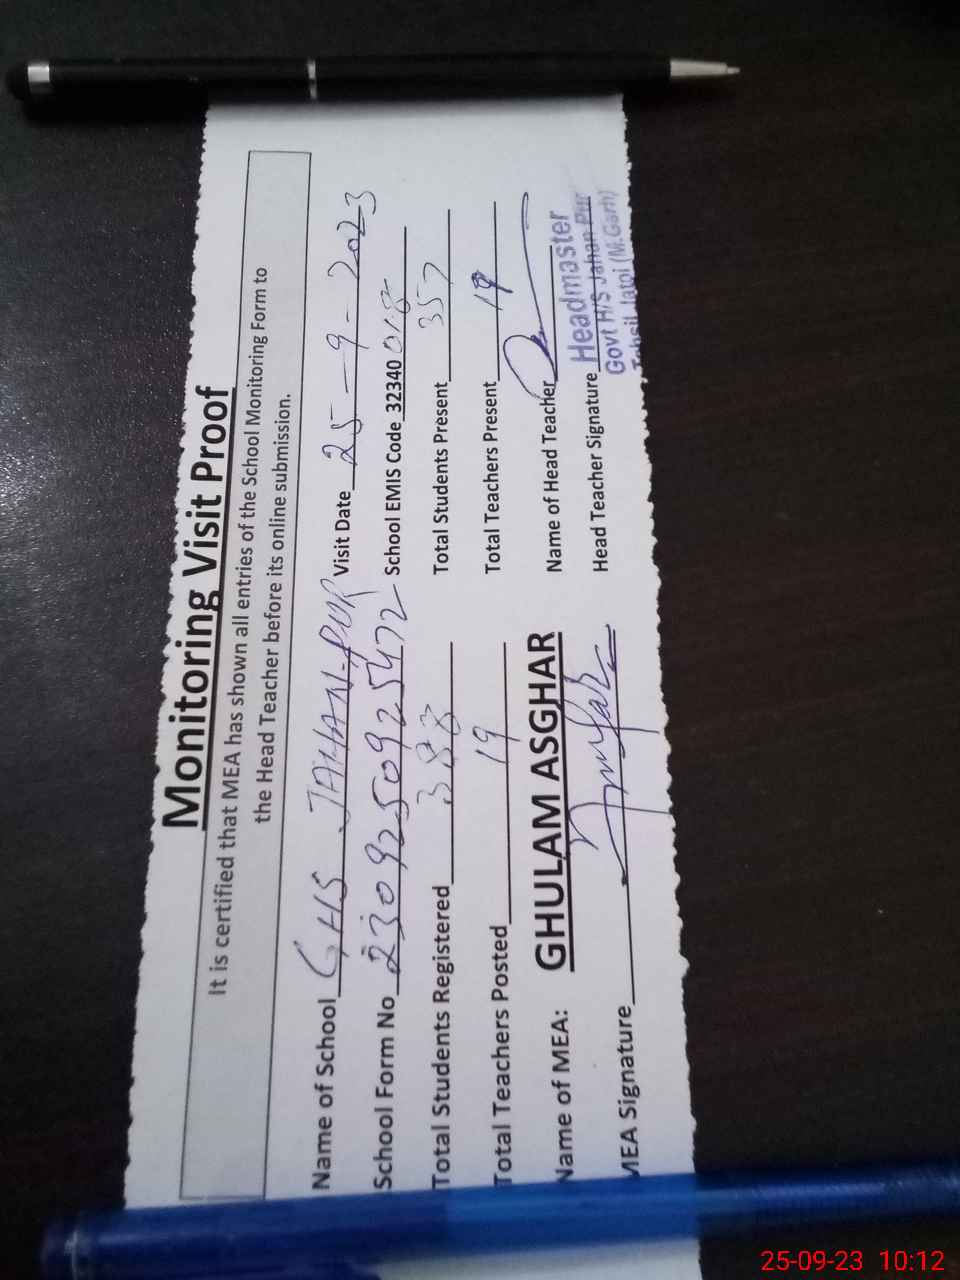 Monitoring Visit Proof
It is certified that MEA has shown all entries of the School Monitoring Form to
the Head Teacher before its online submission.
Name of School GHS JAHAN PUR Visit Date 25-9-2023
School Form No 2309250925472 School EMIS Code 32340018
Total Students Registered 383 Total Students Present 357
Total Teachers Posted 19 Total Teachers Present 19
Name of MEA: GHULAM ASGHAR Name of Head Teacher
MEA Signature Head Teacher Signature
Headmaster
Govt H/S Jahan Pur
Tehsil Jatoi (M.Garh)
25-09-23 10:12